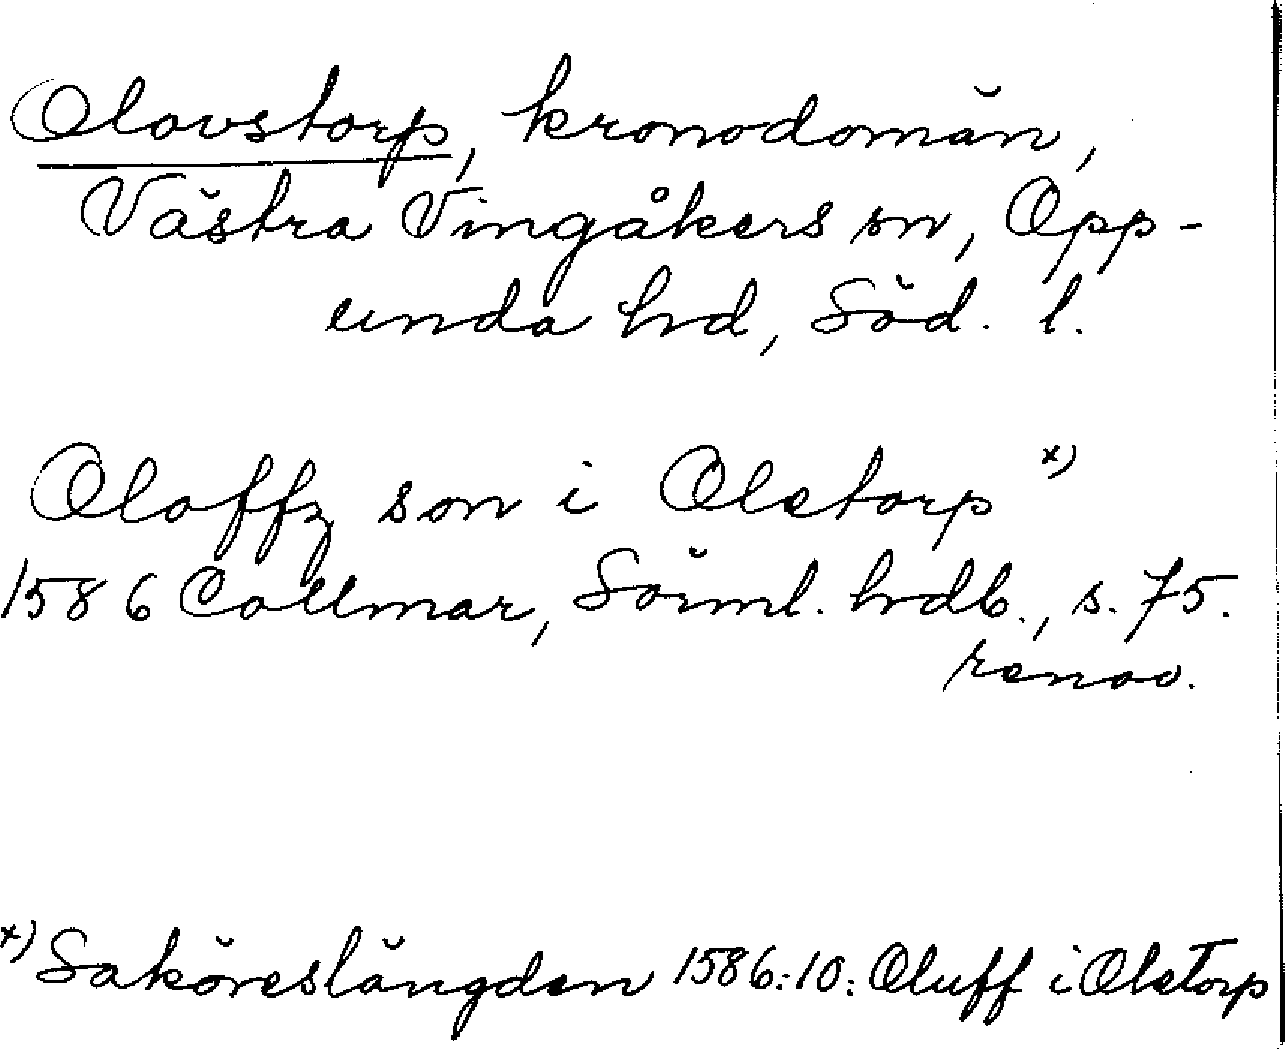 Olovstorp, kronodomän,
Västra Vingåkers sn, Opp-
unda hd, Söd. l.
Oloffz son i Oletorp x)
1586 Collmar, Sörml. hdb., s. 75.
renov.
x) Saköreslängden 1586:10: Oluff i Oletorp